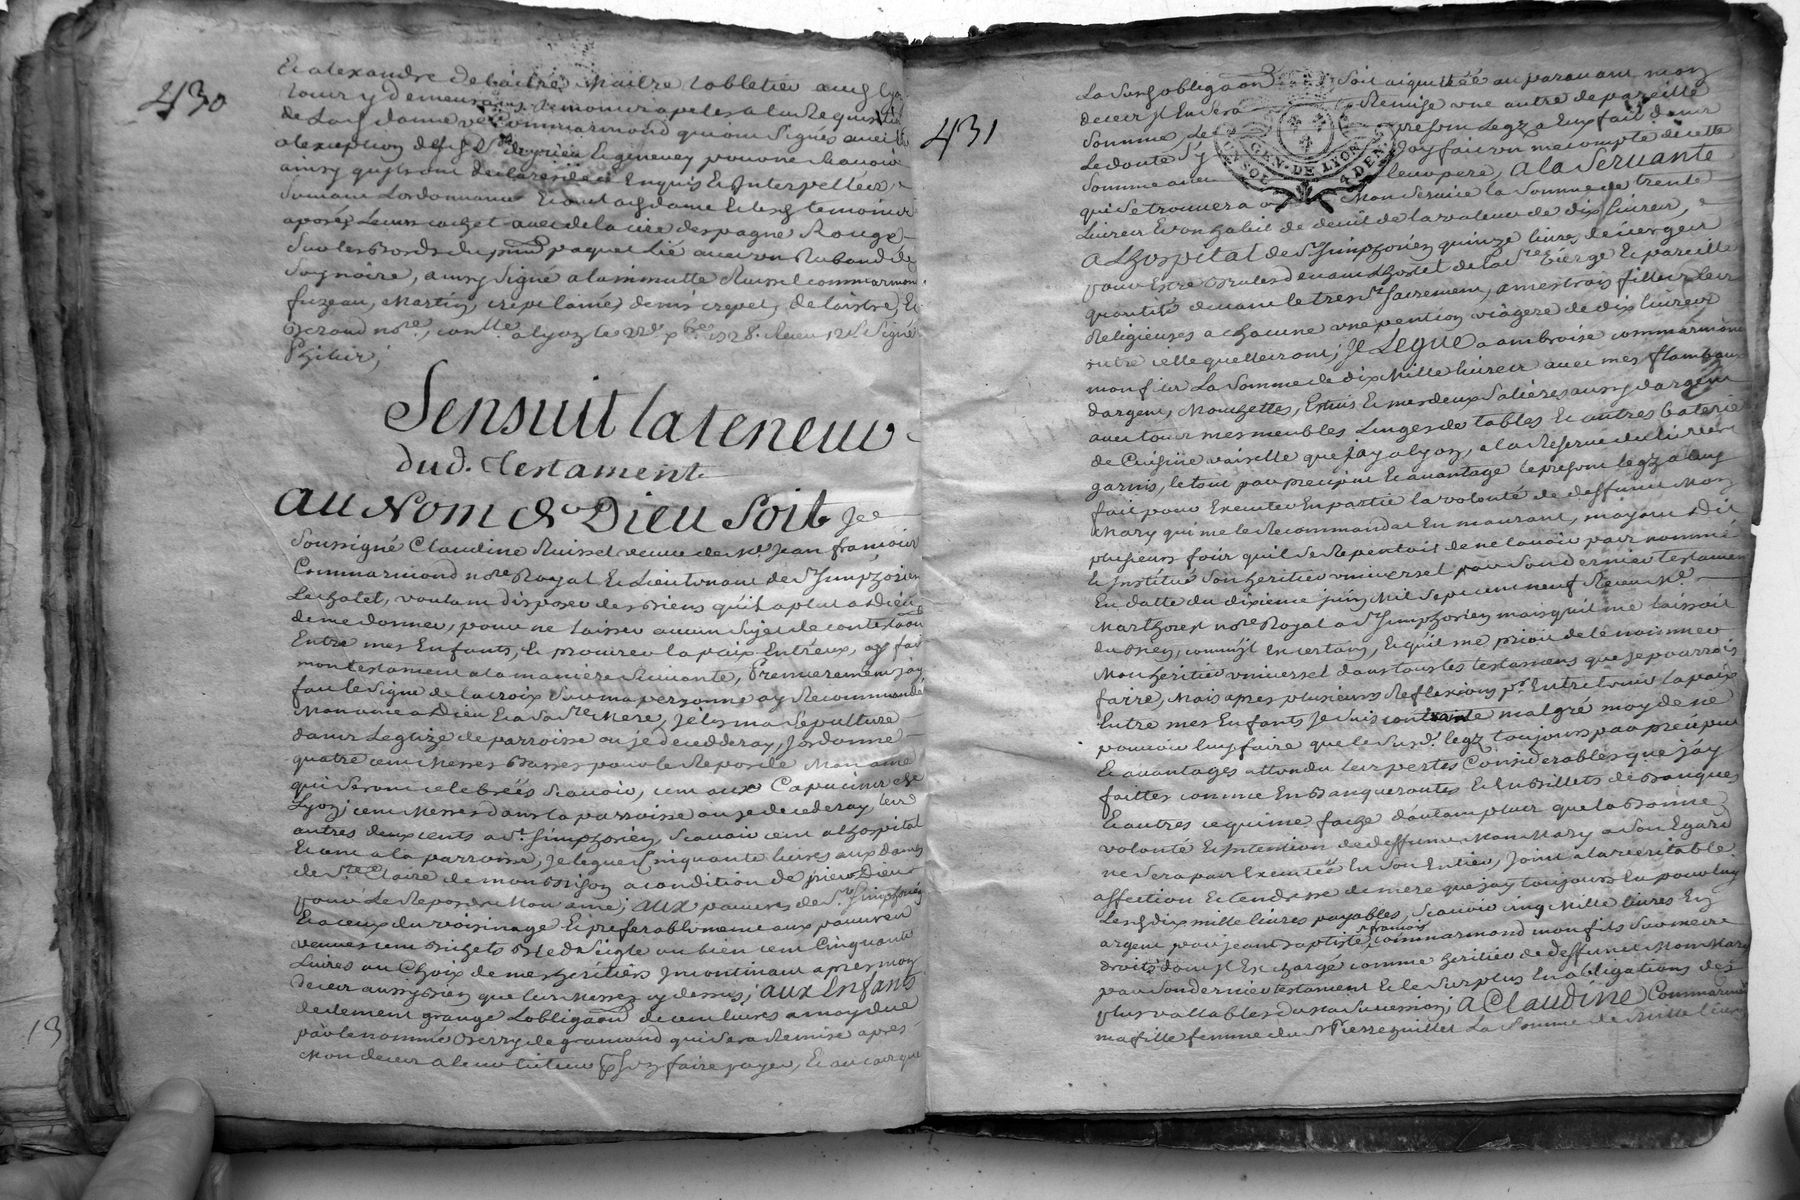 430
Et alexandre delaistre Maitre tabletier aud. lyon
tous y demeurans temoins apeles a la Requisition
de lad. dame veuve Commarmond qui ont signés avec
alexeption desd. Srs Et genevey pour ne scavoir
ainsy quils ont declaré de ce Enquis Et Interpellés
suivant Lordonnance Et ont lad. dame Et lesd. temoins
aposés Leurs cachet avec de la cire despagne Rouge
sur les Bords du paquet Lié avec un Ruband de
soy noire, ainsy signé a la minutte Ruissel commarmond
fuzeau, Martin, crepet lainé, denis crepet, delaistre, Et
no.re, con.lle a lyon le 22e 1728. Receu 12 s. signé
Sensuit la teneur
dud. testament
AU Nom de Dieu soit Je
soussigné Claudine Ruissel veuve de Me Jean francois
Commarmond no.re Royal Et Lieutenant de St Simphorien
Lechatel, voulant disposer des Biens quil a plut a Dieu
de me donner, pour ne laisser aucun sujet de contestaon
Entre mes Enfants, Et procurer la paix Entreux, ay fait
mon testament a la maniere suivante, Premierement jay
fait le signe de la croix sur ma personne ay Recommandé
Mon ame a Dieu Et a sa Ste Mere, jelis ma sepulture
dans Leglize de parroisse ou je decedderay, Jordonne
quatre cent Messes Basses pour le Repos de Mon ame
qui seront celebrées scavoir, cent aux Capucins de
Lyon; cent Messes dans la parroisse ou je decederay, les
autres deux cents a St Simphorien, scavoir cent a Lhospital
Et cent a la parroisse, Je legue Cinquante livres aux dames
de Ste Claire de monbrison a condition de prier Dieu
pour Le Repos de Mon ame; aux pauvres de St Simphorien
Et a ceux du voisinage Et preferablement aux pauvres
veuves cent Bichets Bled seigle ou bien cent Cinquante
Livres au Choix de mes heritiers Incontinant apres mon
deces aussy Bien que les Messes cy dessus; aux Enfants
de clement grange Lobligaon de cent livres a moy due
par le nommé Berry de gramond qui sera Remise apres
Mon deces a leur tuteur faire payer, Et au cas que
431
La susd. obligaon soit aiquittée auparavant mon
deces Il Leur sera Remise une autre de pareille
somme, presant Legz a Eux fait dans
Le doute jay fait un mecompte de cette
somme avec leur pere, a la Servante
qui se trouvera a Mon service la somme de trente
Livres Et un habit de deuil de la valeur de dix Livres,
a Lhospital de St Simphorien quinze livres de cierges
pour Estre Brules devant Lhostel de la Ste vierge Et pareille
quantité devant le tres St Sacrement, a mes trois filles Leur
Religieuses a chacune une pention viagere de dix livres
outre celle quelles ont; Je Legue a ambroise commarmond
mon fils La somme de dix Mille livres avec mes flambeaux
dargent, Mouchettes, Etuis Et mes deux salieres aussy dargent
avec tous mes meubles Linges de tables Et autres baterie
de Cuisine vaiselle que jay a lyon, a la Reserve du lit vert
garnis, le tout par preciput Et avantage le presant legz a luy
fait pour Executer En partie la volonté de deffunct Mon
Mary qui me le Recommanda En mourant, mayant Dit
plusieurs fois quil se Repentoit de ne lavoir pas nommé
Et Institué son heritier universel par son dernier testament
En datte du dixieme juin Mil sept cent neuf Receu Me
Marthorel no.re Royal a St Simphorien mais quil me laissoit
du Bien, Et quil me prioit de le nommer
Mon heritier universel dans tous les testamens que je pourrois
faire, Mais apres plusieurs Reflexions pr Entretenir la paix
Entre mes Enfants je suis contrainte malgré moy de ne
pouvoir luy faire que le susd. legz toujours par preciput
Et avantages attendu les pertes Considerables que jay
faittes comme En Banqueroutes Et En Billets de Banque
Et autres ce qui me fache dautant plus que la Bonne
volonté Et Intention de deffunct Mon Mary a son Egard
ne sera pas Executée En son Entier, Joint a la veritable
affection Et tendresse de mere que jay toujours Eu pour luy
Lesd. dix mille livres payables, scavoir cinq Mille livres En
argent par jean Baptiste francois Commarmond mon fils sur mes
droits dont Il Est chargé comme heritier de deffunct Mon Mary
par son dernier testament Et le surplus En obligations des
plus vallables de ma succession; a Claudine Commarmond
ma fille femme du Sr Pierre guillet La somme de Mille livres